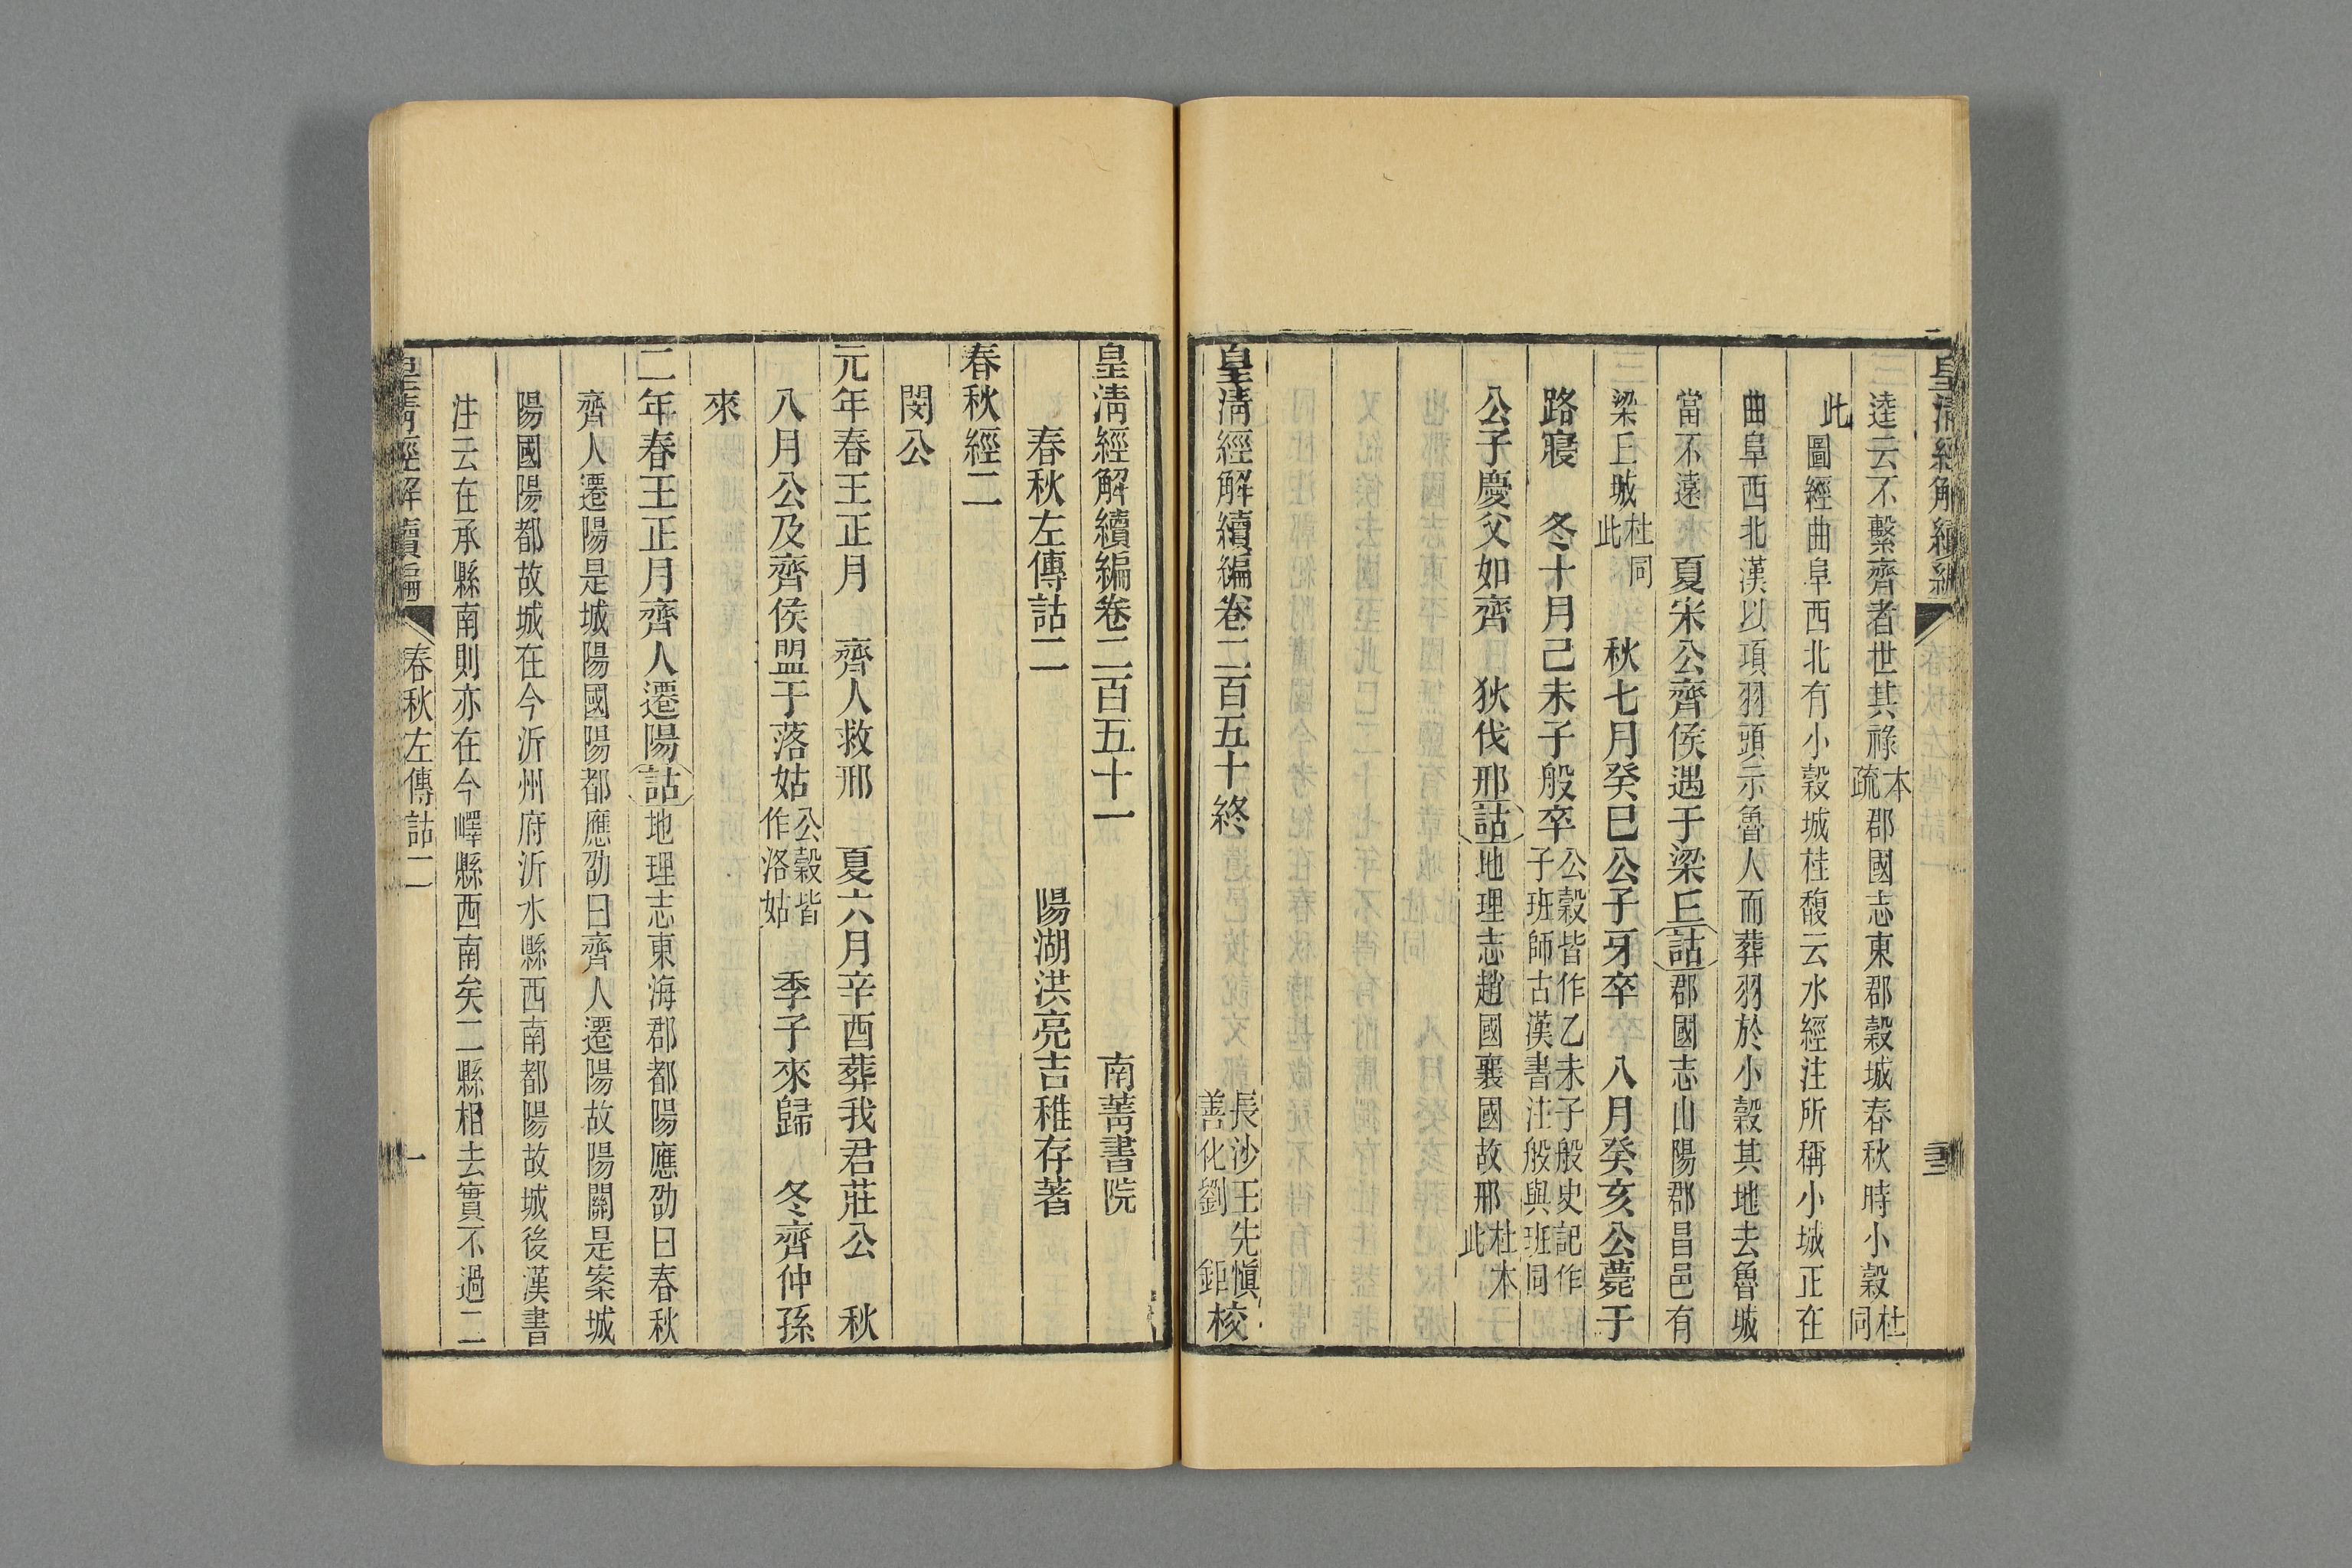 皇清經解續編
逵云不繫齊者世其祿本疏郡國志東郡穀城春秋時小穀杜同
此圖經曲阜西北有小穀城桂馥云水經注所稱小城正在
曲阜西北漢以項羽頭示魯人而葬羽於小穀其地去魯城
當不遠　夏宋公齊侯遇于梁丘詁郡國志山陽郡昌邑有
梁丘城杜同此　秋七月癸巳公子牙卒　八月癸亥公薨于
路寢　冬十月己未子般卒公穀皆作乙未子般史記作子班師古漢書注般與班同
公子慶父如齊　狄伐邢詁地理志趙國襄國故邢杜本此
皇清經解續編卷二百五十終　長沙王先愼善化劉鉅校
皇清經解續編卷二百五十一　南菁書院
春秋左傳詁二　陽湖洪亮吉稚存著
春秋經二
閔公
元年春王正月　齊人救邢　夏六月辛酉葬我君莊公　秋
八月公及齊侯盟于落姑公穀皆作洛姑　季子來歸　冬齊仲孫
來
二年春王正月齊人遷陽詁地理志東海郡都陽應劭曰春秋
齊人遷陽是城陽國陽都應劭曰齊人遷陽故陽關是案城
陽國陽都故城在今沂州府沂水縣西南都陽故城後漢書
注云在承縣南則亦在今嶧縣西南矣二縣相去實不過二
皇清經解續編　春秋左傳詁二　一